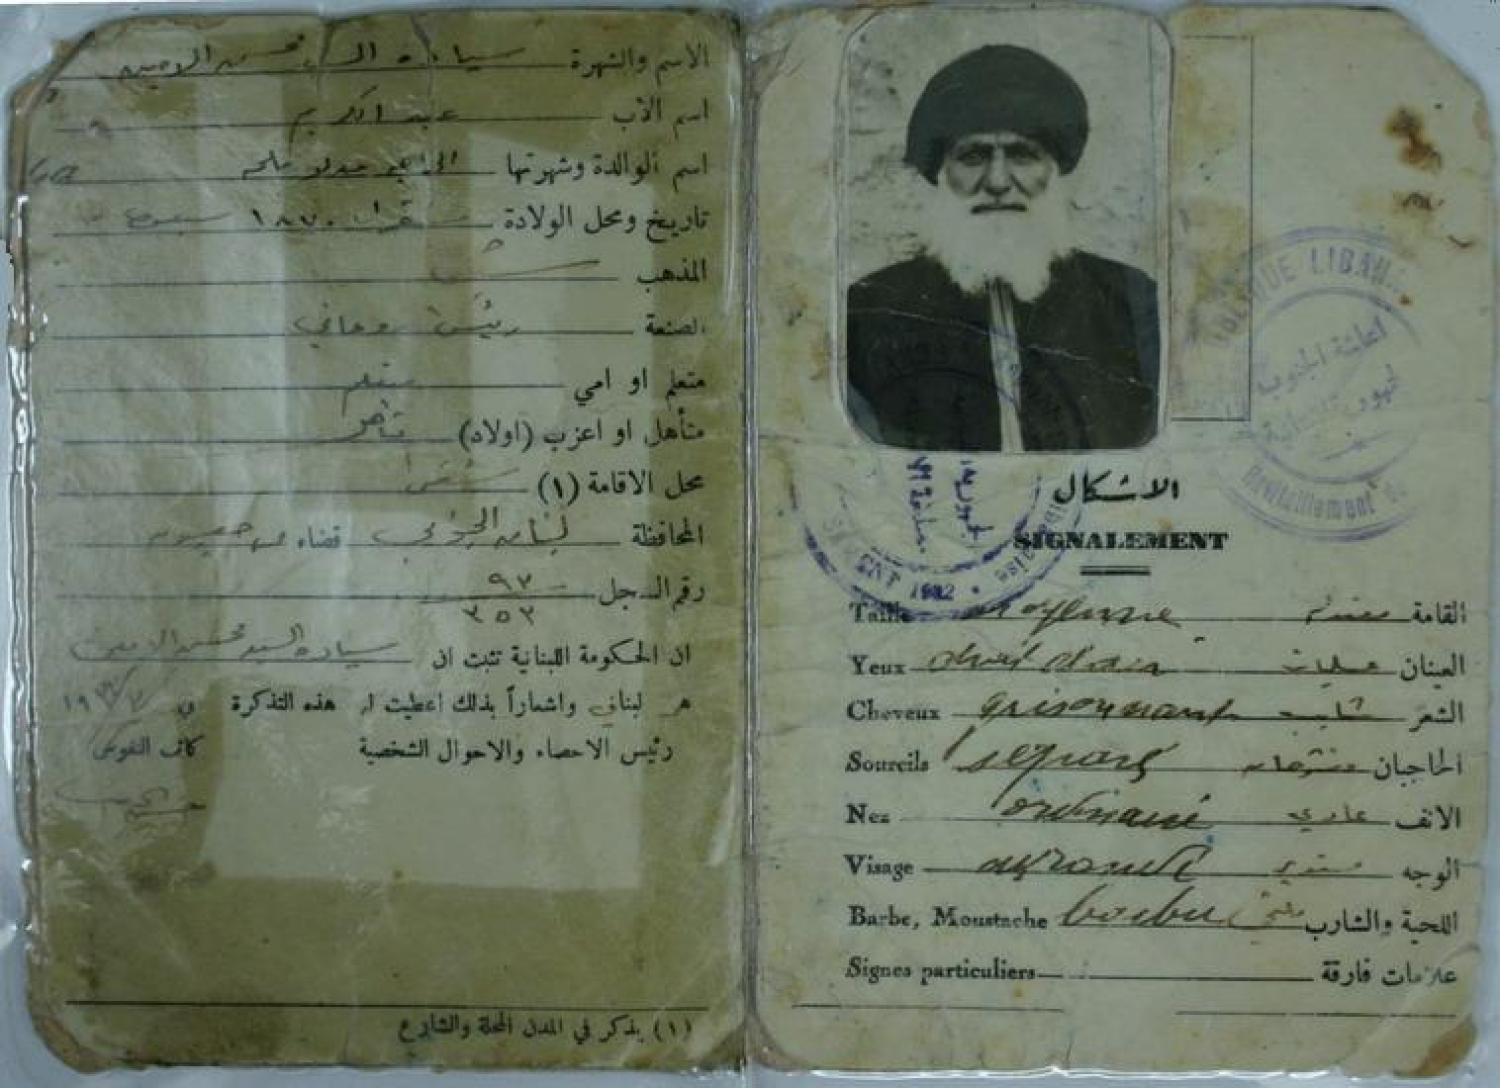 الاسم والشهرة سيادة السيد محسن الامين
اسم الأب عبد الكريم
اسم الوالدة وشهرتها
تاريخ ومحل الولادة شقرا ١٨٧٠
المذهب
الصنعة رئيس روحاني
متعلم او امي متعلم
متأهل او اعزب (اولاد) متأهل
محل الاقامة (١) شقرا
المحافظة لبنان الجنوبي قضاء
رقم السجل ٩٧
٣٥٣
ان الحكومة اللبنانية تثبت ان سيادة السيد محسن الامين
هو لبناني واشعاراً بذلك اعطيت له هذه التذكرة في
رئيس الاحصاء والاحوال الشخصية كاتب النفوس
(١) يذكر في المدن المحلة والشارع
الاشكال
SIGNALEMENT
Taille moyenne القامة
Yeux العينان عسليات
Cheveux grisonnants شائب الشعر
Sourcils séparés الحاجبان
Nez ordinaire عادي الانف
Visage مستدير الوجه
Barbe, Moustache barbu اللحية والشارب
Signes particuliers علامات فارقة